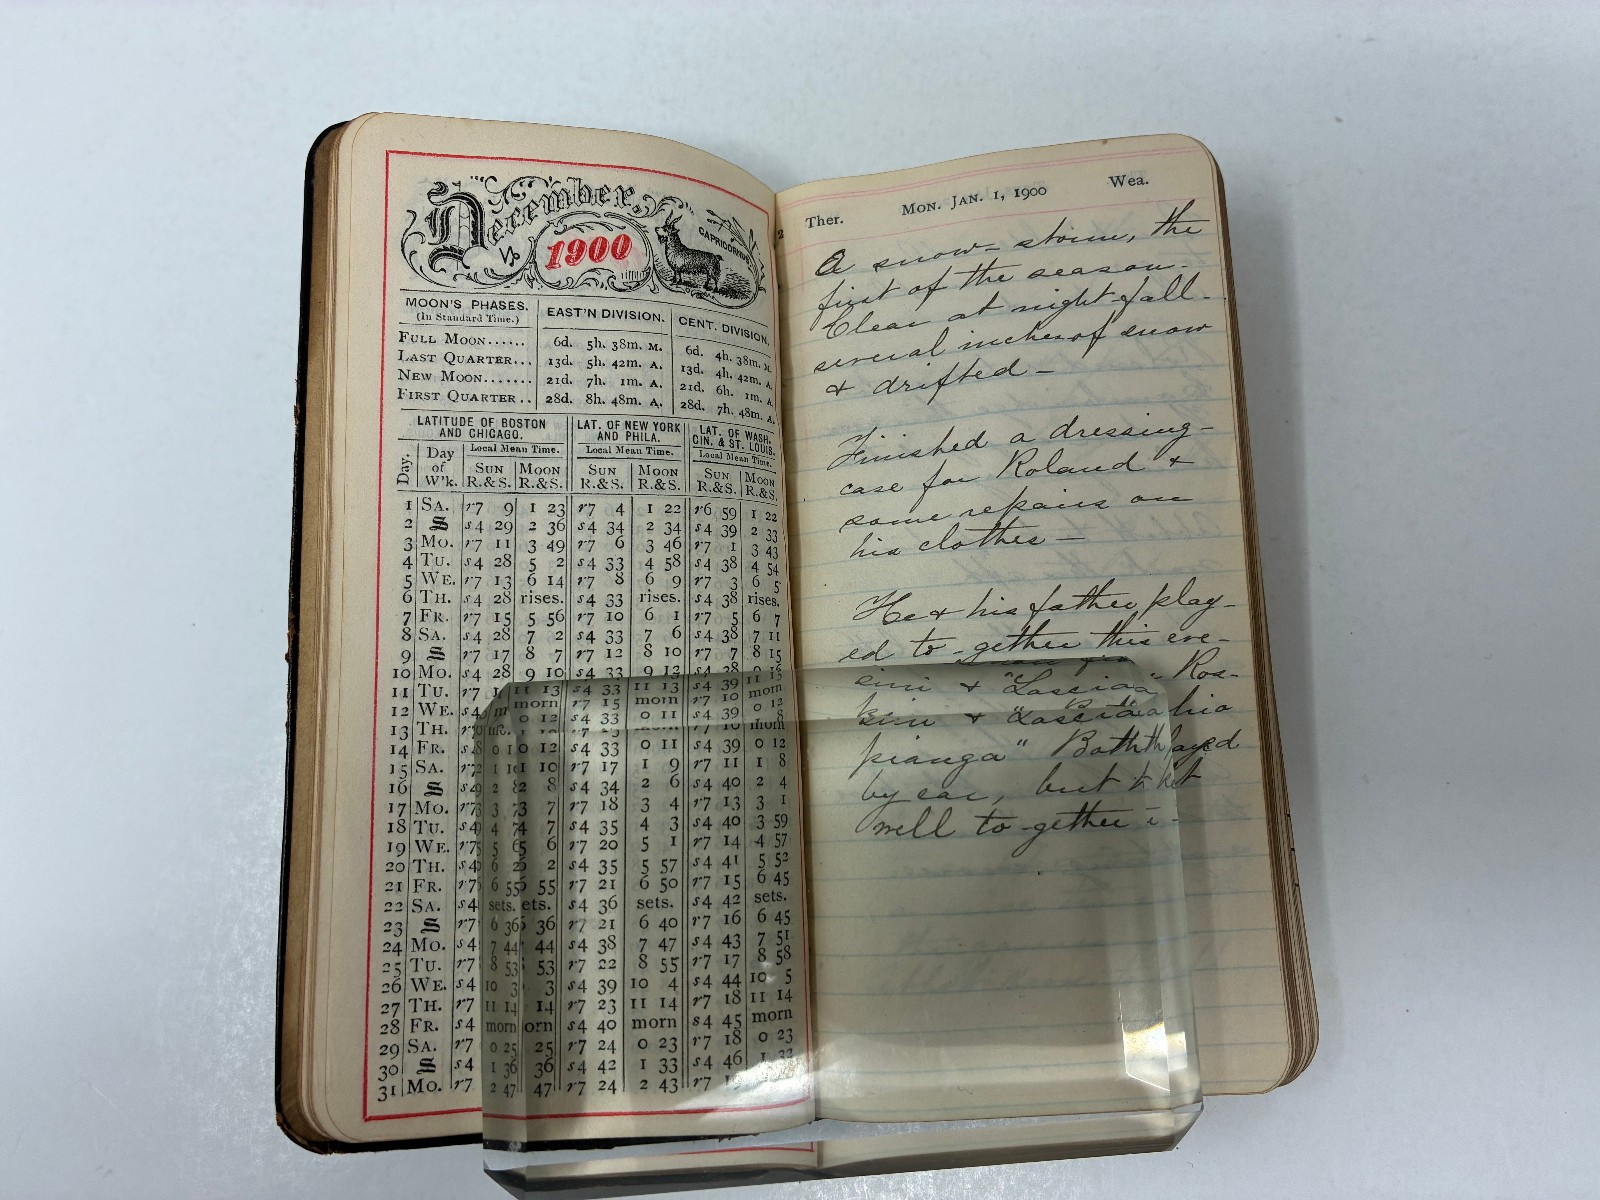 December,
1900
CAPRICORNUS
MOON'S PHASES. EAST'N DIVISION. CENT. DIVISION.
(In Standard Time.)
FULL MOON...... 6d. 5h. 38m. M. 6d. 4h. 38m. M.
LAST QUARTER... 13d. 5h. 42m. A. 13d. 4h. 42m. A.
NEW MOON....... 21d. 7h. 1m. A. 21d. 6h. 1m. A.
FIRST QUARTER.. 28d. 8h. 48m. A. 28d. 7h. 48m. A.
LATITUDE OF BOSTON AND CHICAGO. LAT. OF NEW YORK AND PHILA. LAT. OF WASH. CIN. & ST. LOUIS.
Day. Day of W'k. Local Mean Time. Local Mean Time. Local Mean Time.
SUN R.&S. MOON R.&S. SUN R.&S. MOON R.&S. SUN R.&S. MOON R.&S.
1 SA. r7 9 1 23 r7 4 1 22 r6 59 1 22
2 S s4 29 2 36 s4 34 2 34 s4 39 2 33
3 MO. r7 11 3 49 r7 6 3 46 r7 1 3 43
4 TU. s4 28 5 2 s4 33 4 58 s4 38 4 54
5 WE. r7 13 6 14 r7 8 6 9 r7 3 6 5
6 TH. s4 28 rises. s4 33 rises. s4 38 rises.
7 FR. r7 15 5 56 r7 10 6 1 r7 5 6 7
8 SA. s4 28 7 2 s4 33 7 6 s4 38 7 11
9 S r7 17 8 7 r7 12 8 10 r7 7 8 15
10 MO. s4 28 9 10 s4 33 9 12
11 TU. 11 13 s4 33 11 13 s4 39 11 13
12 WE. morn r7 15 morn r7 10 morn
13 TH. 0 12 s4 33 0 11 s4 39
14 FR. 0 12 s4 33 0 11 s4 39 0 12
15 SA. 1 10 r7 17 1 9 r7 11 1 8
16 S 2 8 s4 34 2 6 s4 40 2 4
17 MO. 3 7 r7 18 3 4 r7 13 3 1
18 TU. 4 7 s4 35 4 3 s4 40 3 59
19 WE. 5 6 r7 20 5 1 r7 14 4 57
20 TH. 6 2 s4 35 5 57 s4 41 5 52
21 FR. 6 55 r7 21 6 50 r7 15 6 45
22 SA. s4 sets. s4 36 sets. s4 42 sets.
23 S r7 6 36 r7 21 6 40 r7 16 6 45
24 MO. s4 7 44 s4 38 7 47 s4 43 7 51
25 TU. r7 8 53 r7 22 8 55 r7 17 8 58
26 WE. s4 10 3 s4 39 10 4 s4 44 10 5
27 TH. r7 11 14 r7 23 11 14 r7 18 11 14
28 FR. s4 morn s4 40 morn s4 45 morn
29 SA. r7 0 25 r7 24 0 23 r7 18 0 23
30 S s4 1 36 s4 42 1 33 s4 46 1 32
31 MO. r7 2 47 r7 24 2 43 r7
Ther. MON. JAN. 1, 1900 Wea.
A snow-storm, the
first of the season.
Clear at night-fall-
several inches of snow
& drifted-
Finished a dressing-
case for Roland &
some repairs on
his clothes-
He & his father play-
ed to-gether this eve-
Ros-
sini & "Lascia ch'io
pianga" Both played
by ear, but
well to-gether